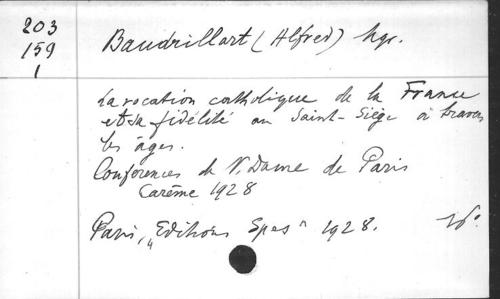 203
159
1
Baudrillart (Alfred) Mgr.
La vocation catholique de la France
et sa fidélité au Saint-Siège à travers
les âges.
Conférences de N. Dame de Paris
Carême 1928
Paris, „Editions Spes" 1928.